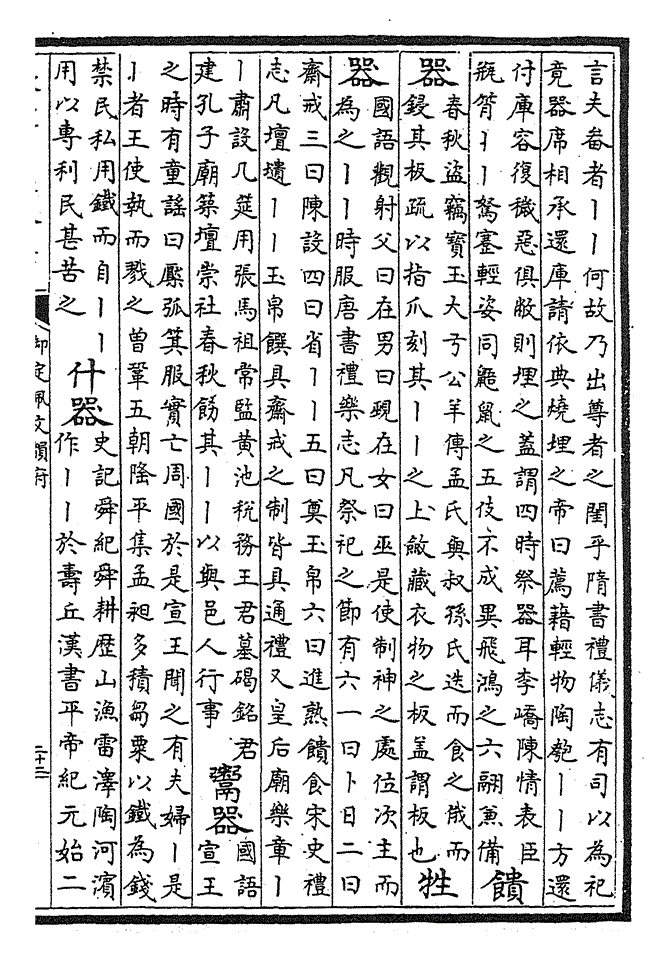 言夫畚者丨丨何故乃出尊者之閨乎隋書禮儀志有司以為祀
竟器席相承還庫請依典燒埋之帝曰薦藉輕物陶匏丨丨方還
付庫容復穢惡俱敝則埋之蓋謂四時祭器耳李嶠陳情表臣
瓶筲丨丨駑蹇輕姿同鼫鼠之五伎不成異飛鴻之六翮兼備
饋
器
春秋盜竊寶玉大弓公羊傳孟氏與叔孫氏迭而食之睋而
鋟其板疏以指爪刻其丨丨之上斂藏衣物之板蓋謂板也
牲
器
國語觀射父曰在男曰覡在女曰巫是使制神之處位次主而
為之丨丨時服唐書禮樂志凡祭祀之節有六一曰卜日二曰
齋戒三曰陳設四曰省丨丨五曰奠玉帛六曰進熟饋食宋史禮
志凡壇壝丨丨玉帛饌具齋戒之制皆具通禮又皇后廟樂章丨
丨肅設几筵用張馬祖常監黃池稅務王君墓碣銘君
建孔子廟築壇崇社春秋飭其丨丨以與邑人行事
鬻器
國語
宣王
之時有童謠曰檿弧箕服實亡周國於是宣王聞之有夫婦丨是
丨者王使執而戮之曾鞏五朝隆平集孟昶多積芻粟以鐵為錢
禁民私用鐵而自丨丨
用以專利民甚苦之
什器
史記舜紀舜耕歷山漁雷澤陶河濱
作丨丨於壽丘漢書平帝紀元始二
御定佩文韻府
二十三